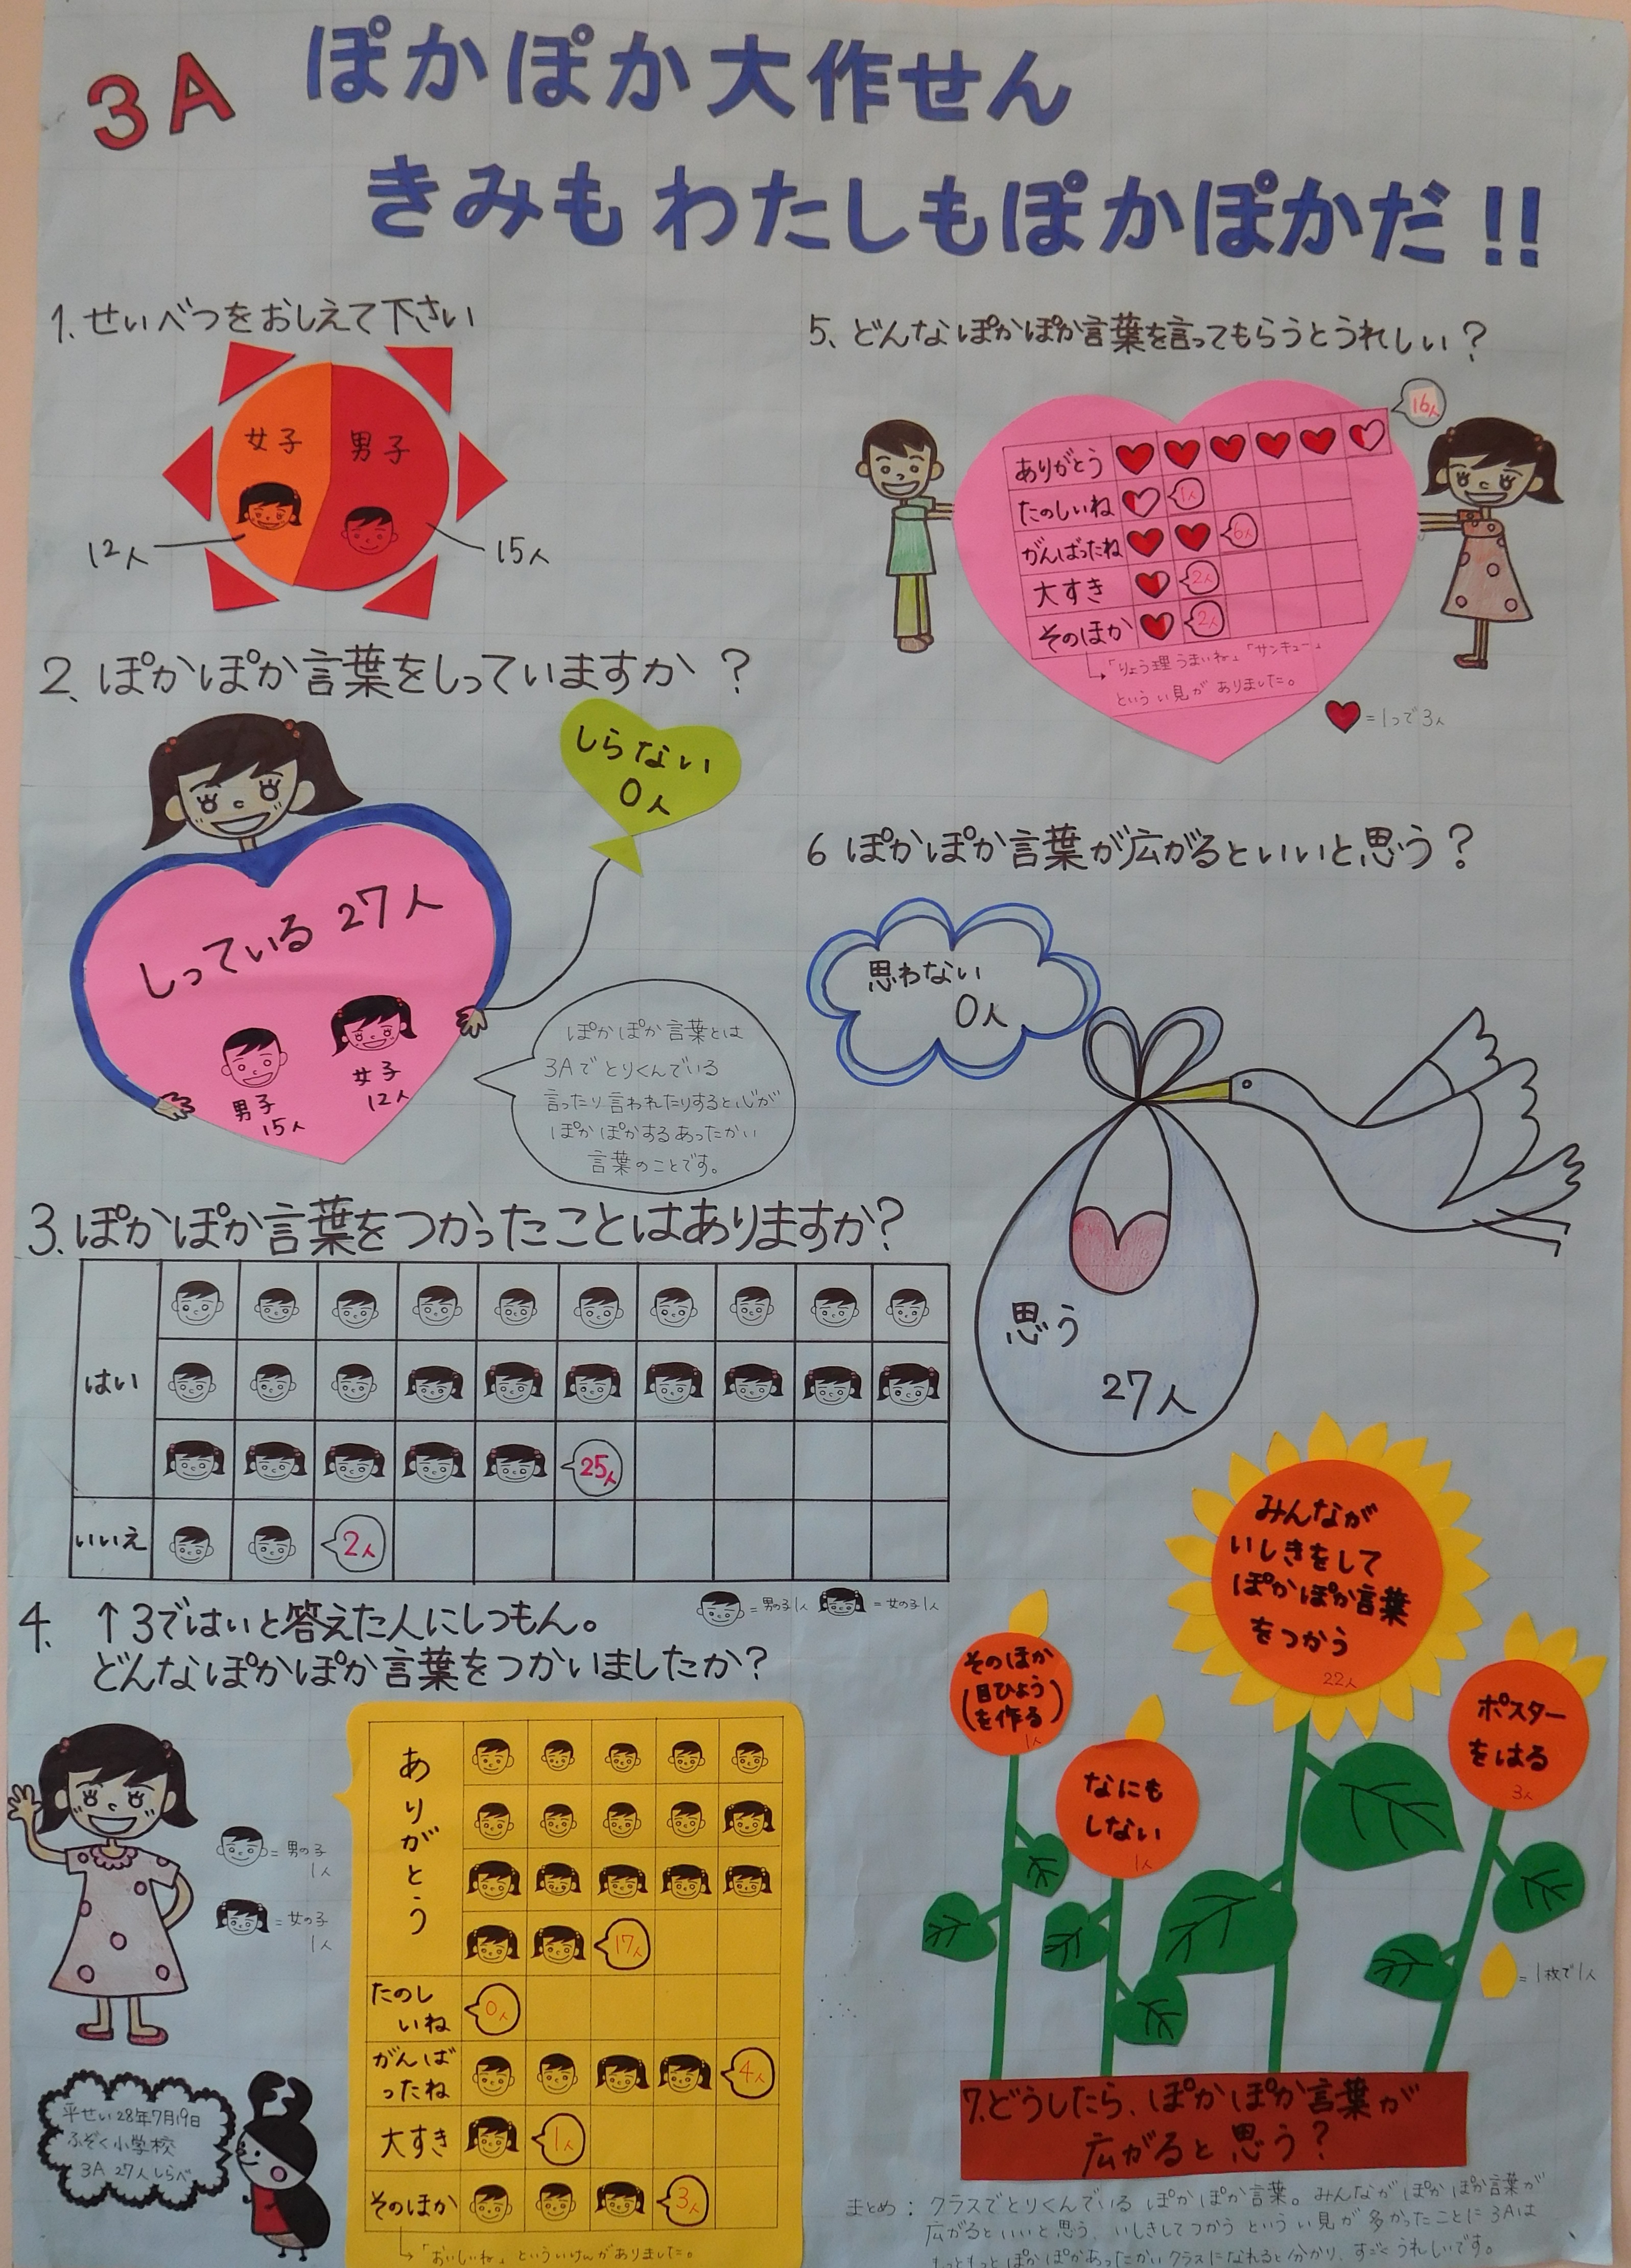 3A
ぽかぽか大作せん
きみもわたしもぽかぽかだ!!
1.せいべつをおしえて下さい
女子
男子
12人
15人
2.ぽかぽか言葉をしっていますか?
しらない
0人
しっている 27人
男子
15人
女子
12人
ぽかぽか言葉とは
3Aでとりくんでいる
言ったり言われたりすると心が
ぽかぽかするあったかい
言葉のことです。
3.ぽかぽか言葉をつかったことはありますか?
はい
25人
いいえ
2人
=男の子1人
=女の子1人
4. ↑3ではいと答えた人にしつもん。
どんなぽかぽか言葉をつかいましたか?
=男の子
1人
=女の子
1人
ありがとう
17人
たのし
いね
0人
がんば
ったね
4人
大すき
1人
そのほか
3人
「おいしいね」といういけんがありました。
平せい28年7月19日
ふぞく小学校
3A 27人しらべ
5、どんなぽかぽか言葉を言ってもらうとうれしい?
16人
ありがとう
たのしいね
1人
がんばったね
6人
大すき
2人
そのほか
2人
「りょう理うまいね」「サンキュー」
というい見がありました。
=1つで3人
6 ぽかぽか言葉が広がるといいと思う?
思わない
0人
思う
27人
みんなが
いしきをして
ぽかぽか言葉
をつかう
22人
そのほか
(目ひょう
を作る)
1人
なにも
しない
1人
ポスター
をはる
3人
=1枚で1人
7.どうしたら、ぽかぽか言葉が
広がると思う?
まとめ:クラスでとりくんでいるぽかぽか言葉。みんながぽかぽか言葉が
広がるといいと思う、いしきしてつかうというい見が多かったことに3Aは
もっともっとぽかぽかあったかいクラスになれると分かり、すごくうれしいです。